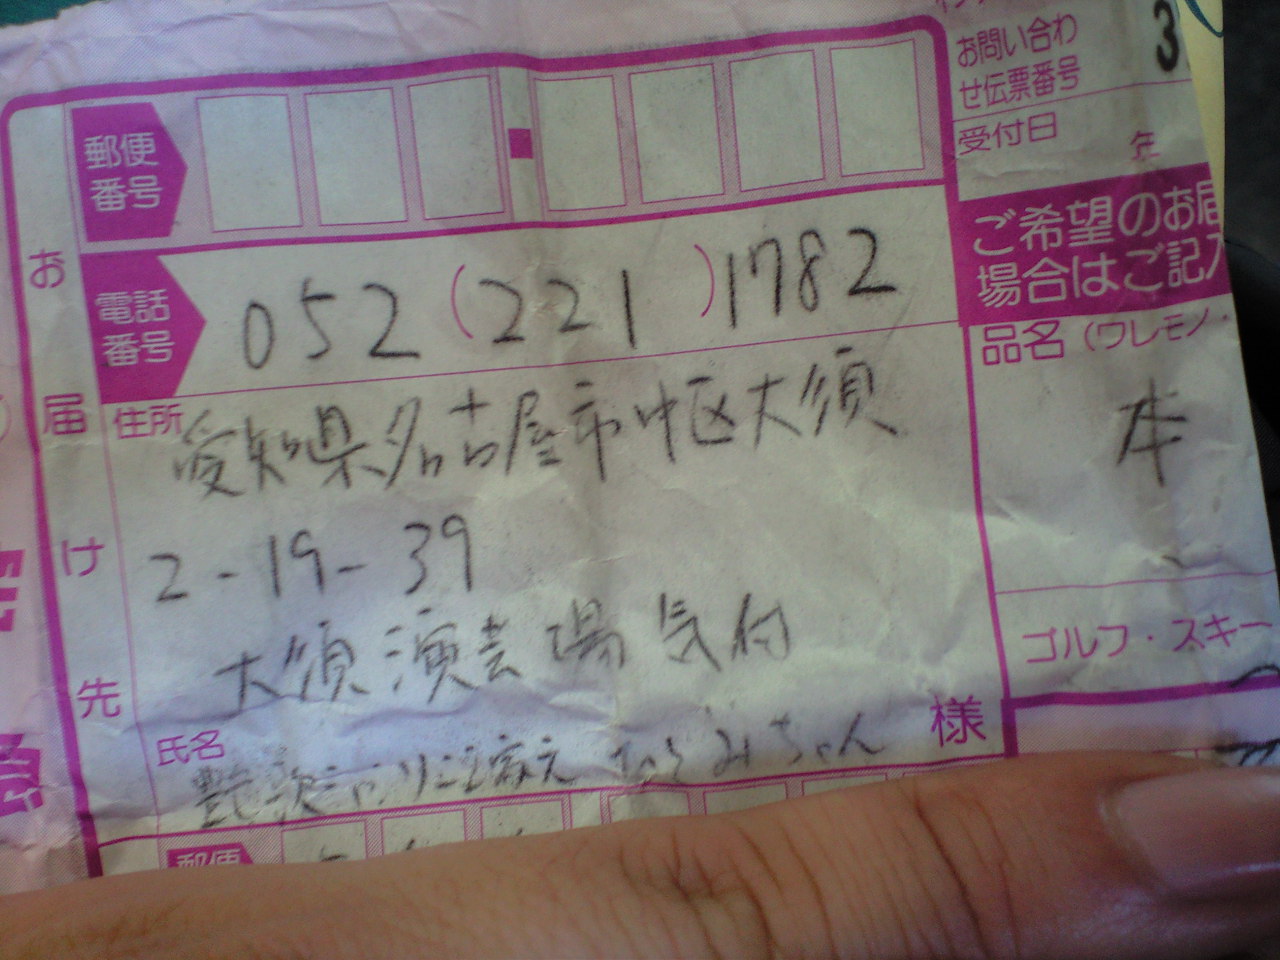 お問い合わ
せ伝票番号
3
受付日
年
郵便
番号
ご希望のお届
場合はご記入
電話
番号
052(221)1782
品名(ワレモノ・
本
お届け先
住所
愛知県名古屋市中区大須
2-19-39
大須演芸場気付
ゴルフ・スキー
氏名
ちゃん
様
郵便